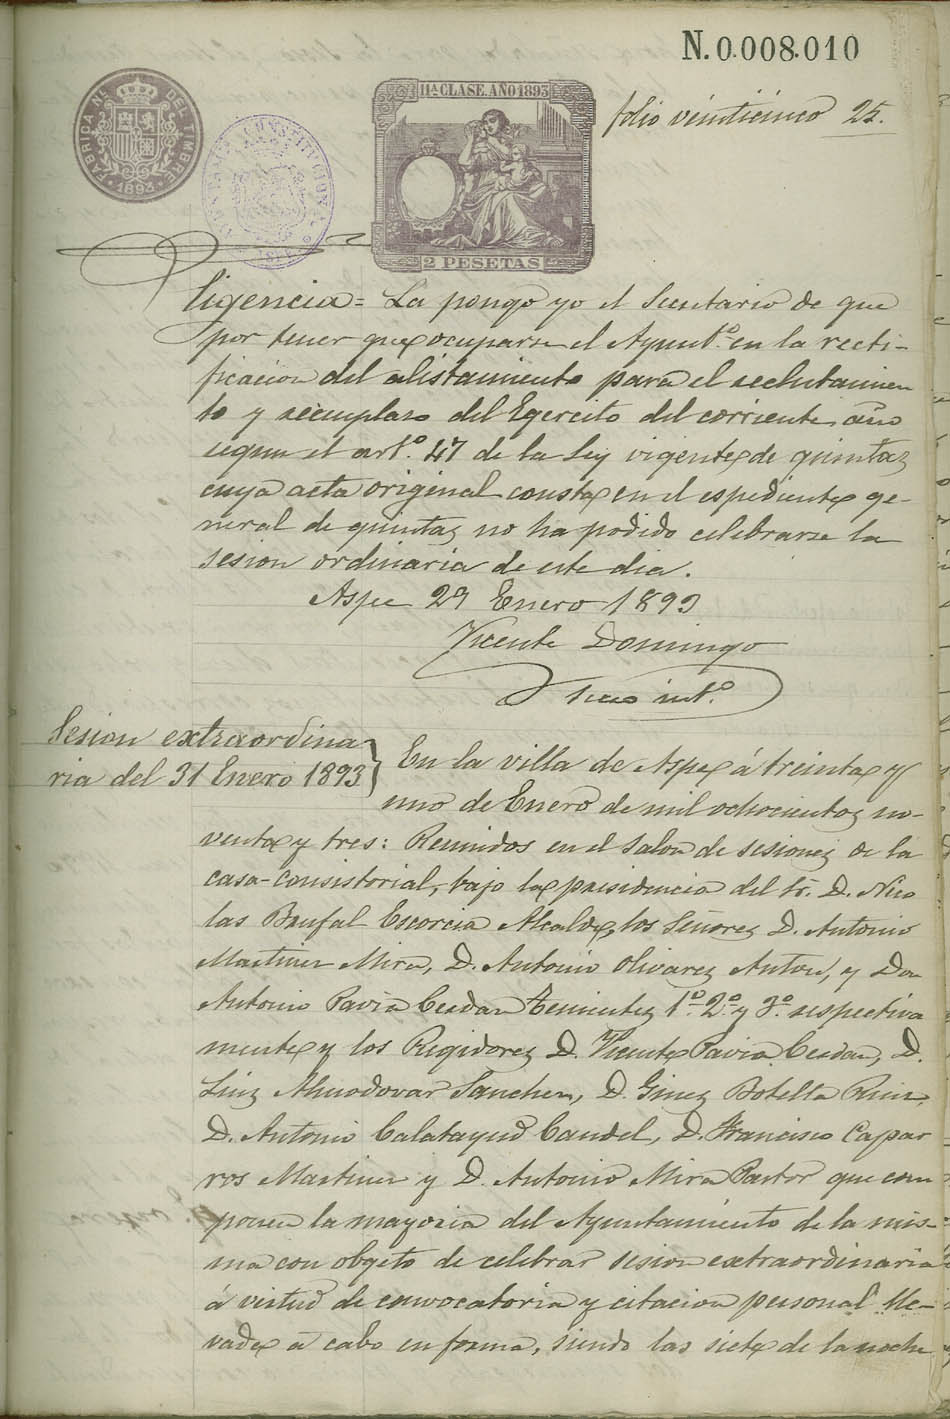 N.0.008.010
11ª CLASE. AÑO 1893
folio veinticinco 25.
FABRICA Nl. DEL TIMBRE
1893
CONSTITUCION
2 PESETAS
Diligencia = La pongo yo el Secretario de que
por tener que ocuparse el Ayunt.º en la recti-
ficacion del alistamiento para el reclutamien
to y reemplazo del Egercito del corriente año
segun el art.º 47 de la Ley vigente de quintas
cuya acta original consta en el espediente ge-
neral de quintas no ha podido celebrarse la
sesion ordinaria de este dia.
Aspe 29 Enero 1893
Vicente Domingo
Srio int.º
Sesion extraordina
ria del 31 Enero 1893
En la villa de Aspe á treinta y
uno de Enero de mil ochocientos no-
venta y tres: Reunidos en el Salon de sesiones de la
casa-Consistorial, bajo la presidencia del Sr. D. Nico
las Brufal Escorcia Alcalde, los Señores D. Antonio
Martinez Mira, D. Antonio Olivares Anton, y Don
Antonio Pavia Cerdan Tenientes 1º 2º y 3º respectiva
mente y los Regidores D. Vicente Pavia Cerdan, D.
Luis Almodovar Sanchez, D. Gines Botella Ruiz,
D. Antonio Calatayud Candel, D. Francisco Capar
ros Martinez y D. Antonio Mira Pastor que com
ponen la mayoria del Ayuntamiento de la mis-
ma con obgeto de celebrar sesion extraordinaria
á virtud de convocatoria y citacion personal lle-
vada a cabo en forma, siendo las siete de la noche